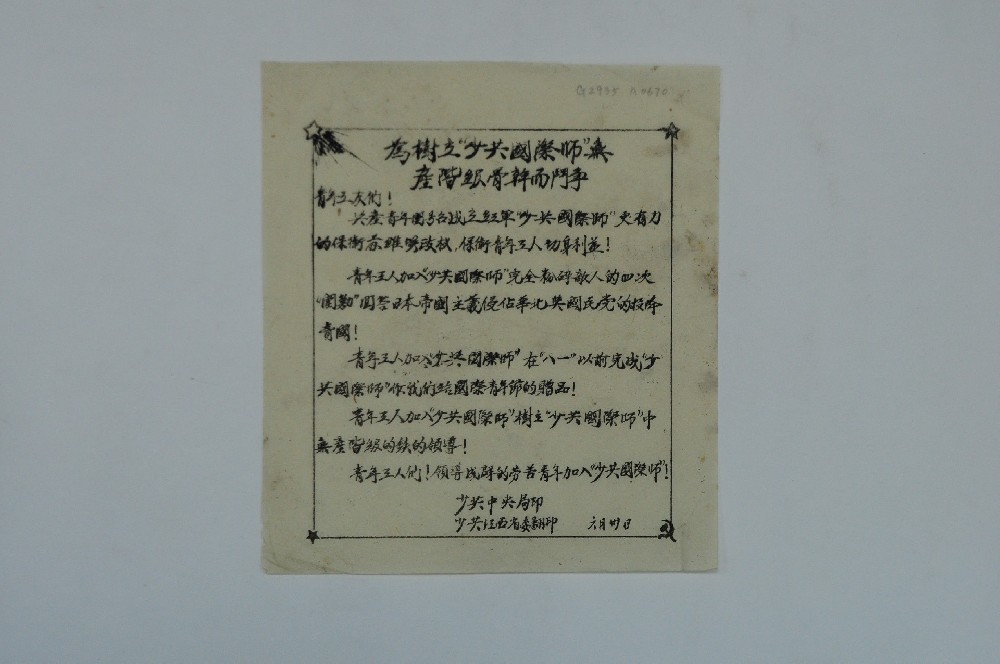 G2985
為樹立"少共國際師"無
產階級骨幹而鬥爭
青年工友們！
共產青年團號召成立紅軍"少共國際師"更有力
的保衛蘇維埃政权，保衛青年工人切身利益！
青年工人加入"少共國際師"完全粉碎敵人的四次
"圍勦"回答日本帝國主義侵佔華北與國民党的投降
賣國！
青年工人加入"少共國際師"在"八一"以前完成"少
共國際師"作我們給國際青年節的贈品！
青年工人加入"少共國際師"樹立"少共國際師"中
無產階級的鉄的領導！
青年工人們！領導成群的劳苦青年加入"少共國際師"！
少共中央局印
少共江西省委翻印 六月卅日